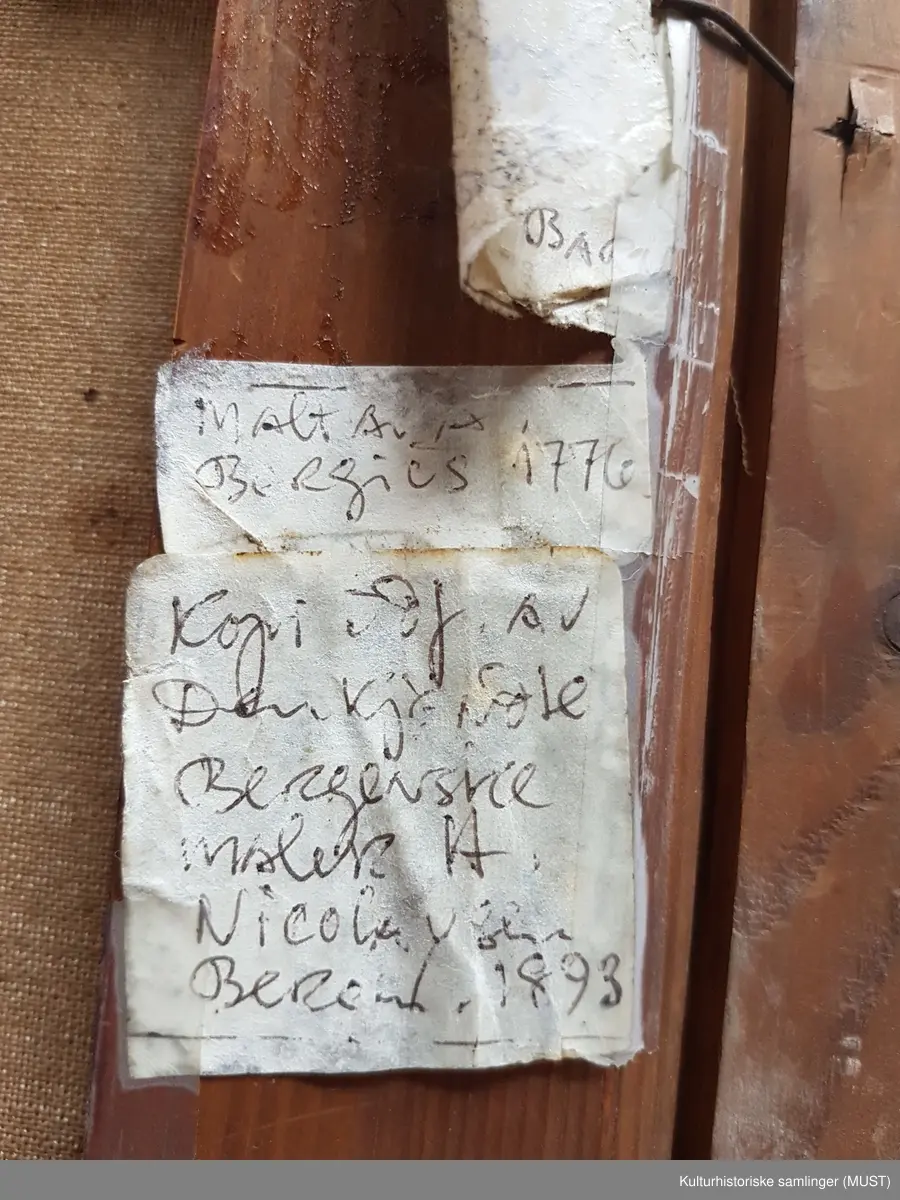 BAC
MALT AV A.
BERGIUS 1776
Kopi av
Den kjente
BERGENSKE
MALER H.
Nicolaysen
BERGEN. 1893
Kulturhistoriske samlinger (MUST)